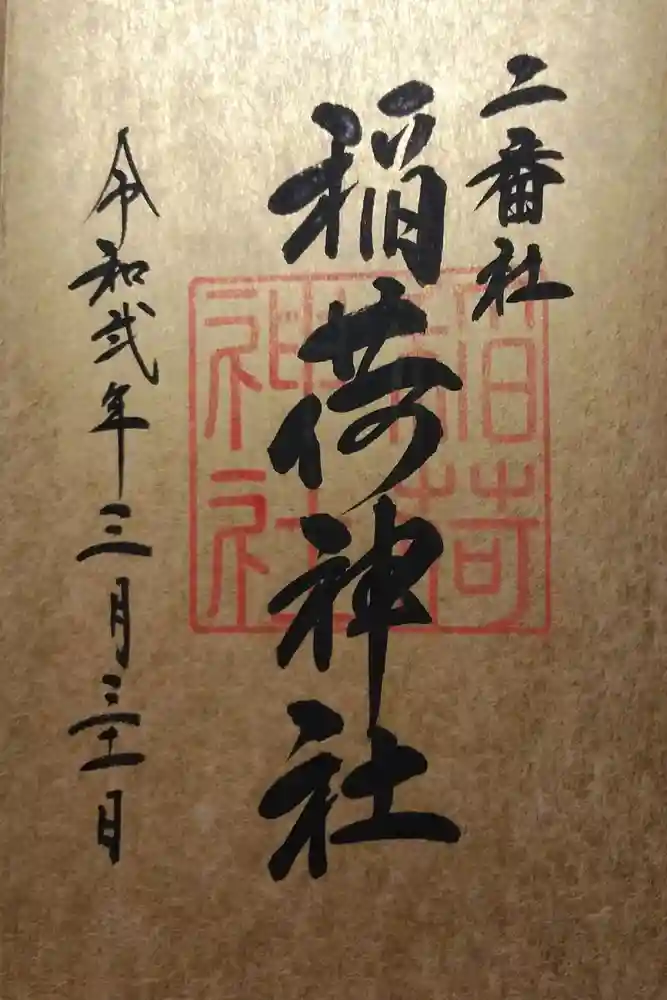 二番社
稲荷神社
稲荷神社
令和弐年三月三十一日